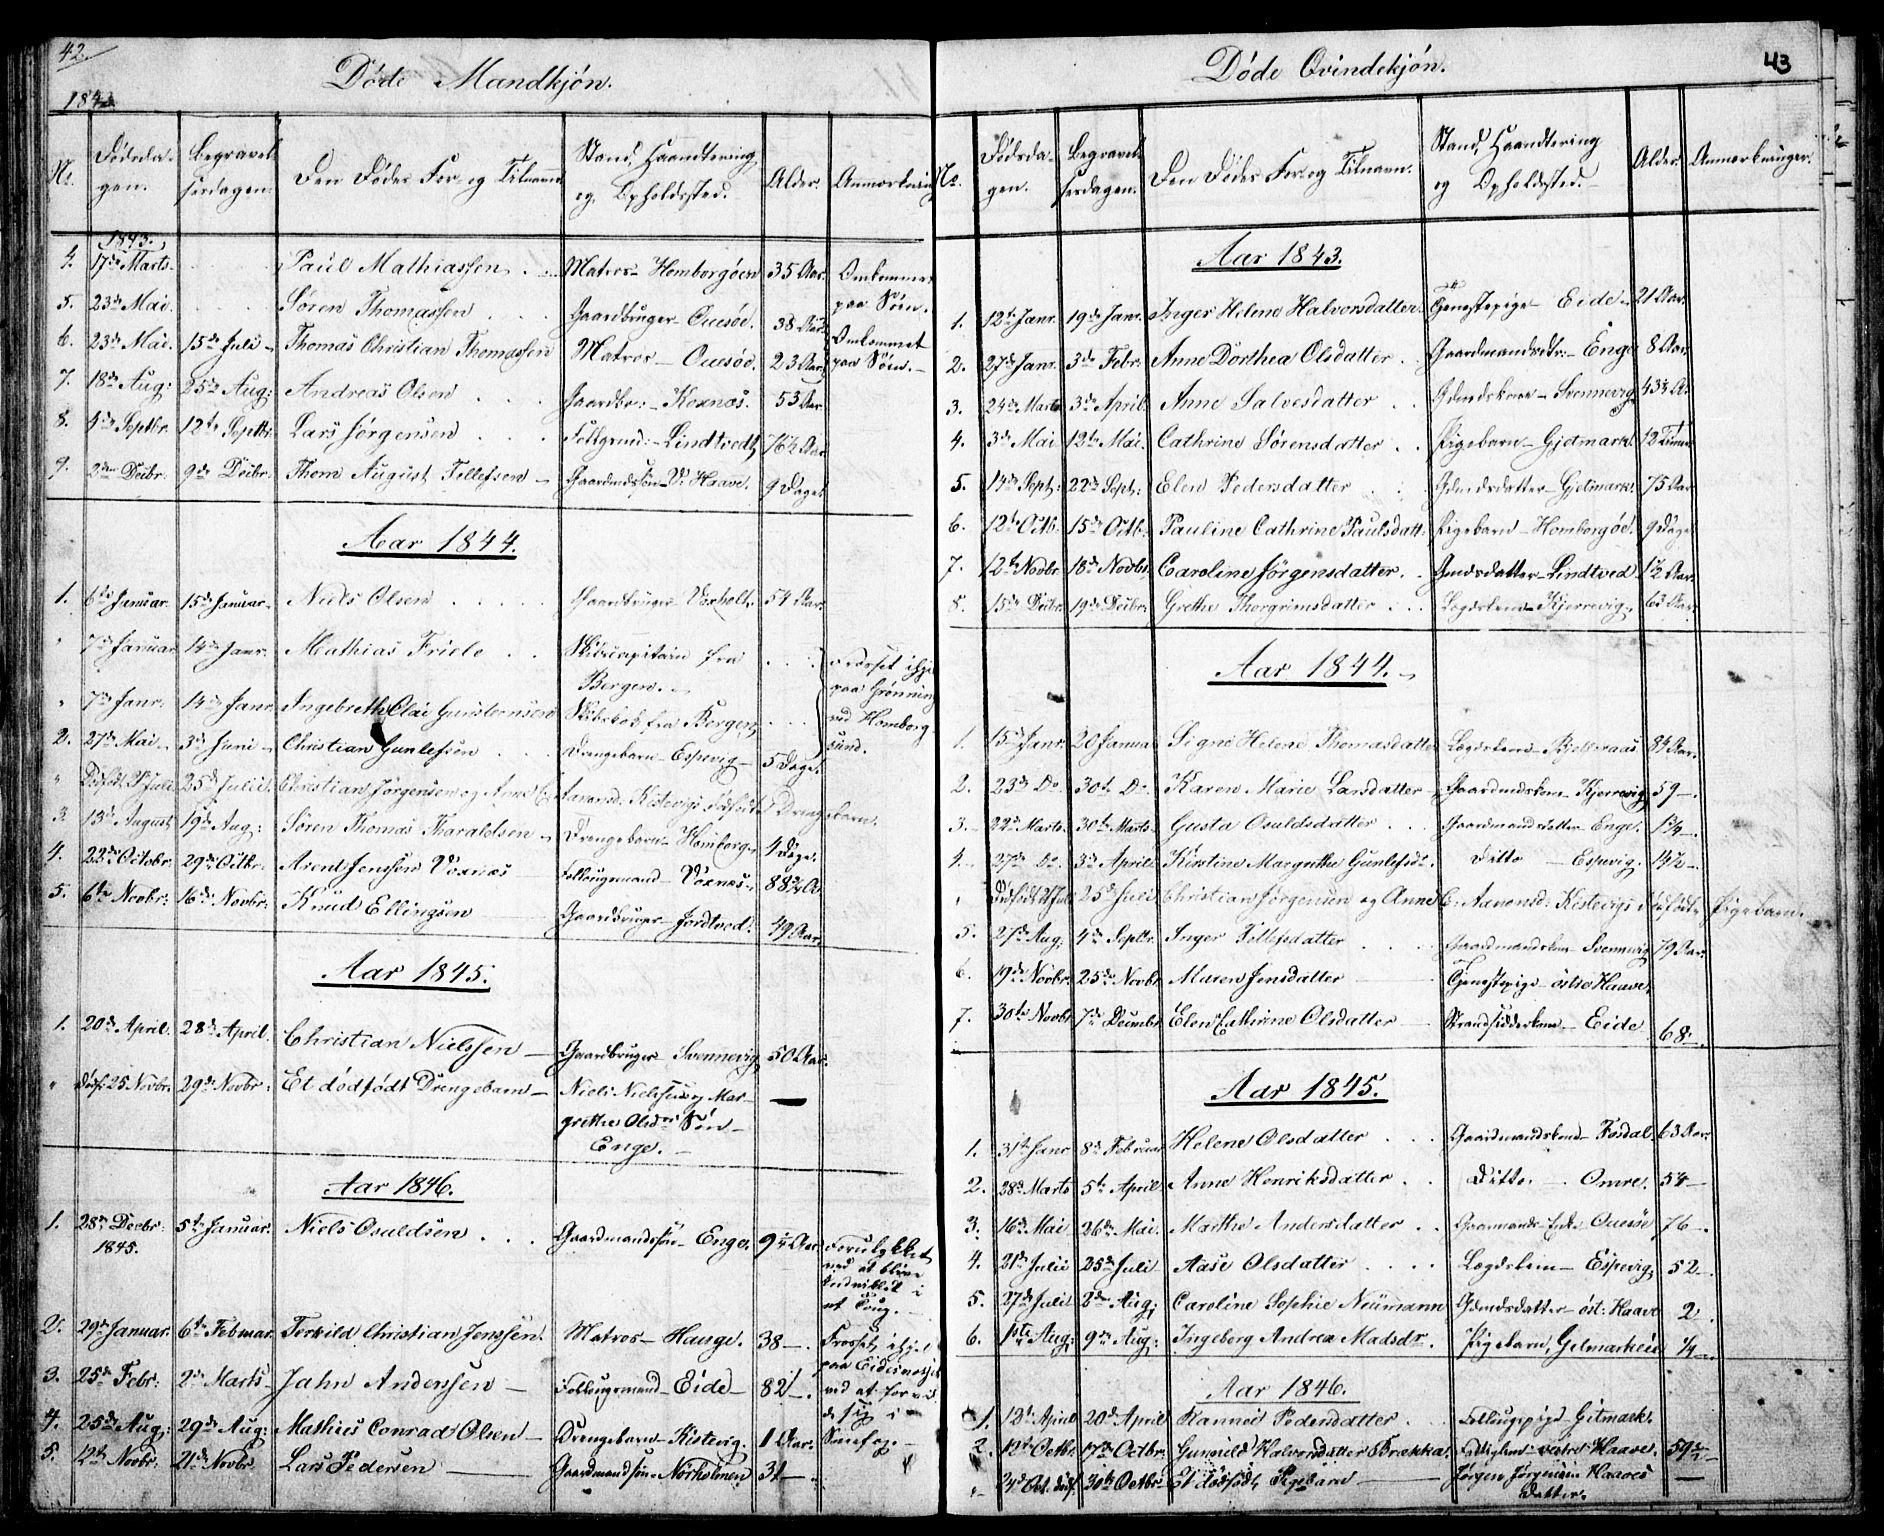 42.
Døde Mandkjön.
184
No.
Dødsda-
gen.
Begravel-
sesdagen.
Den Dødes For og Tilnavn
Stand, Haandtering
og Opholdssted.
Alder.
Anmærkning
1843.
4. 17de Marts. Paul Mathiassen Matros Homborgöen 35 Aar. Omkommen
paa Søen.
5. 23de Mai. Søren Thomassen Gaardbruger Ouesöe. 38 Aar
6. 23de Mai. 15de Juli Thomas Christian Thomassen Matros Ouesöe. 23 Aar Omkommet
paa Søen.
7. 18de Aug: 25de Aug: Andreas Olsen Gaardbr: Kexnæs. 53 Aar
8. 4de Septbr. 12te Septbr. Lars Jørgensen Lindtvedt 76½ Aar
9. 2den Decbr. 9de Decbr. Thom August Tellefsen Gaardmdssön V: Haave. 9 Dage
Aar 1844.
1. 6te Januar. 15de Januar Niels Olsen Gaardbruger Voxholt 54 Aar.
" 7de Januar 14de Janr. Mathias Friele Skibscapitain fra
Bergen. Frosset ihjel
paa Grønning
ved Homborg
sund.
" 7de Janr. 14de Janr Ingebreth Clai Gunstensen Skibskok fra Bergen
2. 27de Mai 3de Juni Christian Gunlefsen Drengebarn Espevig 5 Dage.
" Dødfødt 21 Juli 25de Julii Christian Jørgensen og Anne C. Aanonsd. Kistevigs dødfødte Drengebarn.
3. 13de August 19de Aug: Søren Thomas Tharaldsen Drengebarn Homborg 4 Dage.
4. 22de Octobr. 29de Octbr. Arent Jenssen Voxnæs Føllougsmand Voxnæs 88¾ A
5. 6te Novbr: 16de Novbr: Knud Ellingsen Gaardbruger Jordtved. 49 Aar.
Aar 1845.
1. 20de April. 28de April. Christian Nielssen Gaardbruger Svennevig 50 Aar.
" Dødf. 25 Novbr. 29de Novbr: Et dödfödt Drengebarn Niels Nielssens og Mar-
grethe Olsdrs Søn
Enge. —
Aar 1846.
1. 28de Decbr. 5te Januar. Niels Osuldsen Gaardmandssön Enge. 9¼ Aar Forulykket
1845. ved at blive
indviklet i
et Toug.
2. 29de Januar. 6te Februar. Terkild Christian Jenssen. Matros Hauge. 38 —. Frosset ihjel
3. 25de Febr: 2de Marts Jahn Anderssen Føllougsmand Eide 82 —.
4. 25de Aug: 29de Aug: Mathies Conrad Olsen Drengebarn Kistevig. 1 Aar.
5. 12te Novbr: 21de Novbr. Lars Pedersen Gaardmandsön Nörholmen 31 —
43
Døde Qvindekjön.
No.
Dødsda-
gen.
Begravel-
sesdagen.
Den Dødes For og Tilnavn.
Stand, Haandtering
og Opholdssted.
Alder.
Anmærkninger.
Aar 1843.
1. 12te Janr. 19de Janr. Inger Helene Halvorsdatter. Tjenestepige Eide 21 Aar.
2. 27de Janr. 3de Febr. Anne Dorthea Olsdatter Gaardmandsdtr: Enge 8 Aar.
3. 24de Marts 3de April. Anne Salvesdatter Gdmdskone Svennevig 43¾ A.
4. 3de Mai 12te Mai. Cathrine Sörensdatter Pigebarn Gjetmark 12 Timer
5. 14de Sept: 22de Sept: Elen Pedersdatter Gdmdsdatter Gjetmark. 75 Aar
6. 12te Octb. 15de Octb. Pauline Cathrine Paulsdatt: Pigebarn Homborgöe. 9 Dage
7. 12te Novbr 18de Novbr Caroline Jørgensdatter Gmdsdatter Lindtved 1½ Aar.
8. 15de Decbr. 19de Decbr. Grethe Thorgrimsdatter Lægdslem Kjerrevig 63 Aar.
Aar 1844.
1. 15de Janr. 20 Januar Signe Helene Thomasdatter Lægdslem 84 Aar.
2. 23de Do. 30te Do. Karen Marie Larsdatter Gaardmdskone Kjerrevig 59 —.
3. 22de Marts 30te Marts Gusta Osuldsdatter Gaardmandsdatter Enge.
4. 27de Do. 3de April Kirstine Margrethe Gunlefsdr. Ditto Espevig. 14½ —
" Dødfødt 21 Juli 25de Juli Christian Jørgensen og Anne C. Aanonsd: Kistevigs dødfødte Pigebarn.
5. 27de Aug: 4de Septbr. Inger Tellefsdatter Gaardmandskone Svennevig 79 Aar.
6. 19de Novbr. 25de Novbr. Maren Jensdatter Tjenestepige östre Haave.
7. 30te Novbr 7de Decembr Elen Cathrine Olsdatter Strandsidderkone Eide 68 —.
Aar 1845.
1. 31te Janr 8de Februar Helene Olsdatter Gaardmandskone Fosdal. 63 Aar
2. 28de Marts 5te April Anne Henriksdatter Ditto. Omre. 54 —
3. 16de Mai 26de Mai. Marthe Andersdatter Gaarmands Enke Ouesöe 76 —.
4. 21de Julii 25de Juli Aase Olsdatter Lægdslem Espevig. 52 —.
5. 27de Juli 2den Aug: Caroline Sophie Neümann Gdmdsdatter öst: Haave 2.
6. 1ste Aug: 9de Aug: Ingeborg Andrea Madsdr. Pigebarn, Getmarkeie ¼ —
Aar 1846.
1. 12te April 20de April Hannei Pedersdatter Gitmark.
2. 12te Octbr. 17de Octbr. Gunvild Halvorsdatter Brække. vestre Haave. 59½ —
" 24de Oct. dødf. 30te Octbr. Et dödfödt Pigebarn Jørgen Jørgensen Haaves
Datter. —